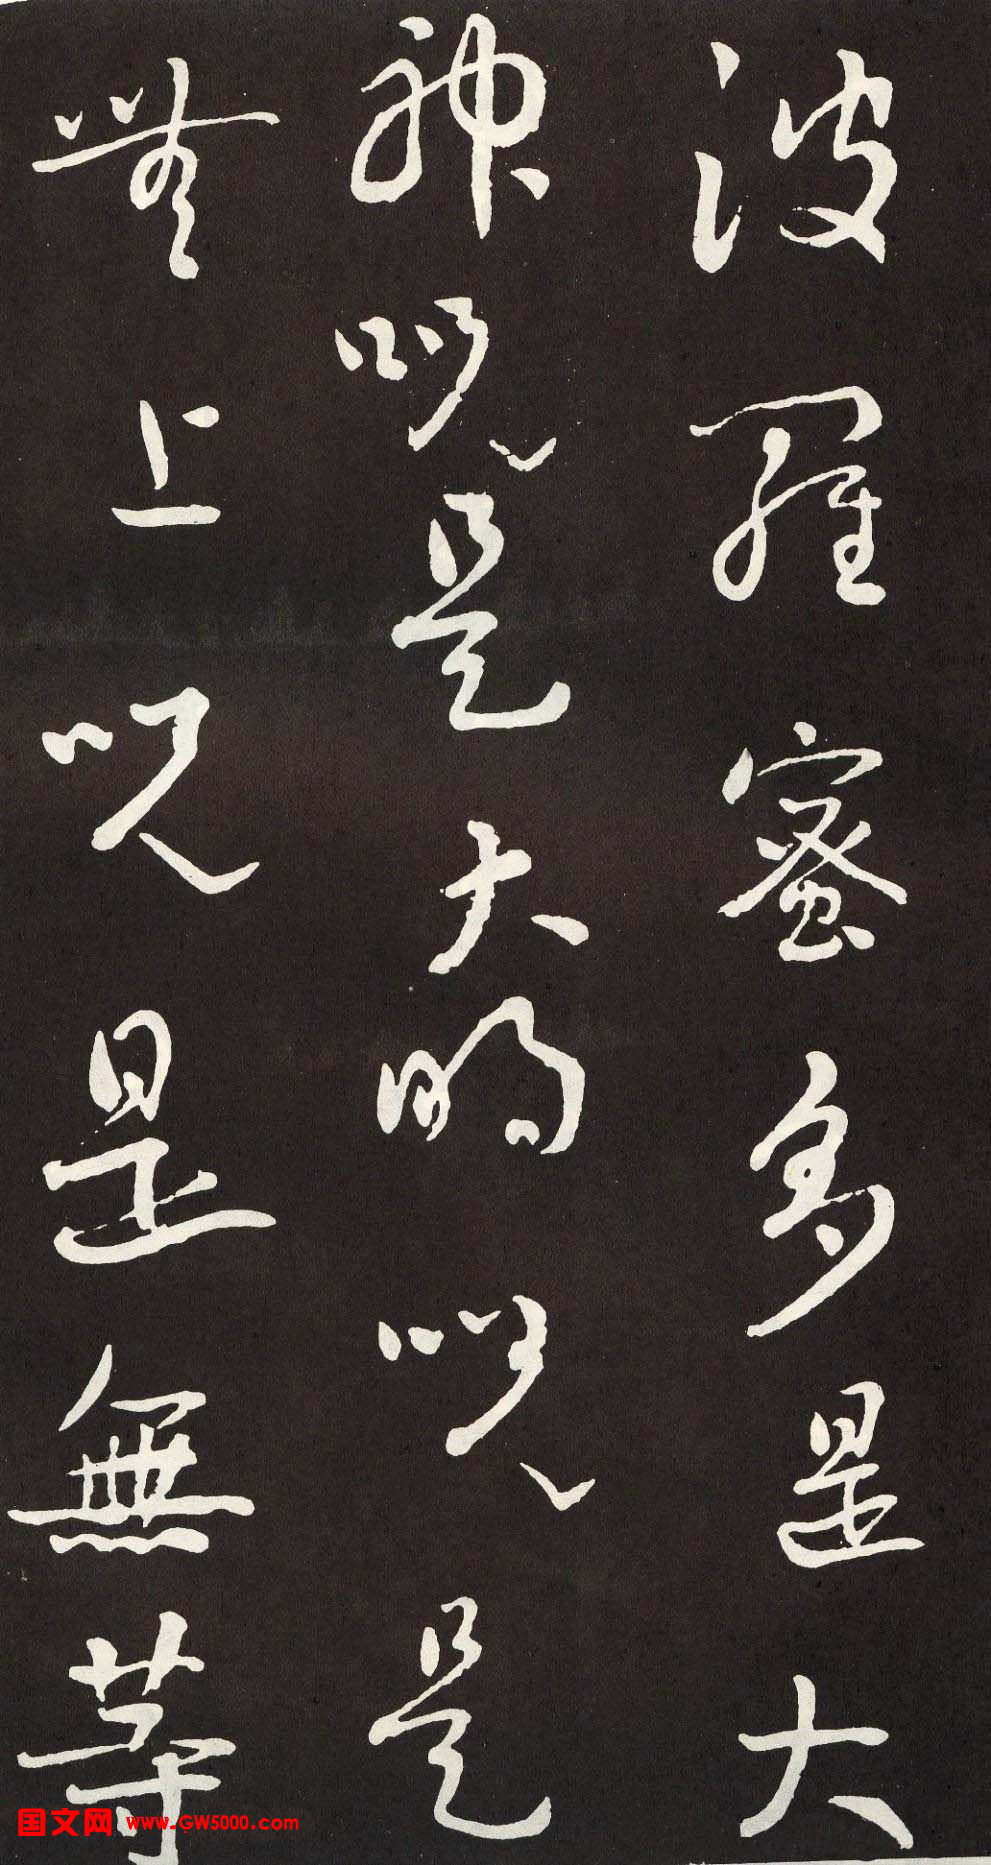 波羅蜜多是大
神呪是大明呪是
無上呪是無等
国文网 www.GW5000.com